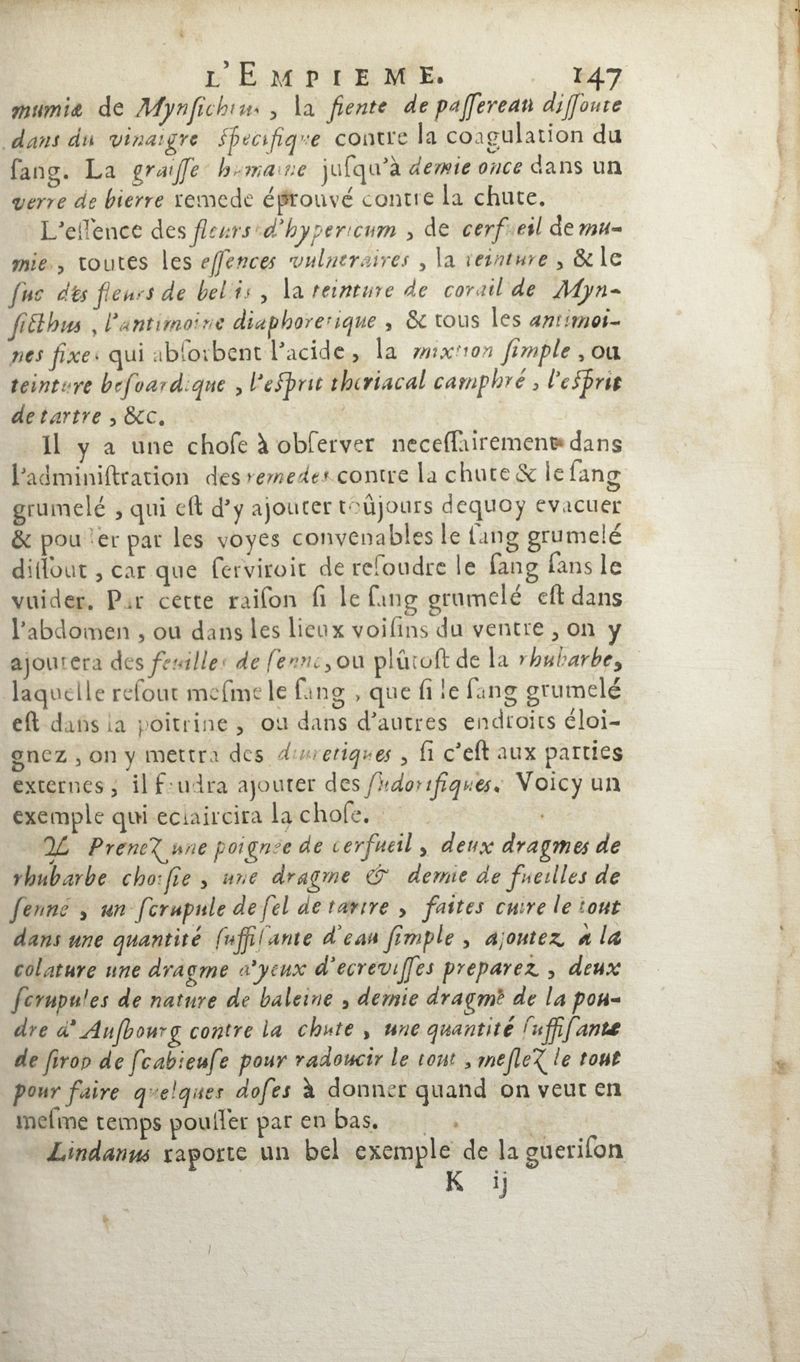 L'EMPIEME. 147
mumiæ de Mynsichtus, la fiente de passereau dissoute
dans du vinaigre specifique contre la coagulation du
sang. La graisse humaine jusqu'à demie once dans un
verre de bierre remede éprouvé contre la chute.
L'essence des fleurs d'hypericum, de cerfeüil de mu-
mie, toutes les essences vulneraires, la teinture, & le
suc des fleurs de bellis, la teinture de corail de Myn-
sicthus, l'antimoine diaphoretique, & tous les antimoi-
nes fixes qui absorbent l'acide, la mixtion simple, ou
teinture besoardique, l'esprit theriacal camphré, l'esprit
de tartre, &c.
Il y a une chose à observer necessairement dans
l'administration des remedes contre la chute & le sang
grumelé, qui est d'y ajouter toûjours dequoy evacuer
& pousser par les voyes convenables le sang grumelé
dissout, car que serviroit de resoudre le sang sans le
vuider. Par cette raison si le sang grumelé est dans
l'abdomen, ou dans les lieux voisins du ventre, on y
ajoutera des feuilles de senne, ou plûtost de la rhubarbe,
laquelle resout mesme le sang, que si le sang grumelé
est dans la poitrine, ou dans d'autres endroits éloi-
gnez, on y mettra des diuretiques, si c'est aux parties
externes, il faudra ajouter des sudorifiques. Voicy un
exemple qui eclaircira la chose.
℞ Prenez une poignée de cerfueil, deux dragmes de
rhubarbe choisie, une dragme & demie de fueilles de
senné, un scrupule de sel de tartre, faites cuire le tout
dans une quantité suffisante d'eau simple, ajoutez à la
colature une dragme d'yeux d'ecrevisses preparez, deux
scrupules de nature de baleine, demie dragme de la pou-
dre d'Ausbourg contre la chute, une quantité suffisante
de sirop de scabieuse pour radoucir le tout, meslez le tout
pour faire quelques doses à donner quand on veut en
mesme temps pousser par en bas.
Lindanus raporte un bel exemple de la guerison
K ij